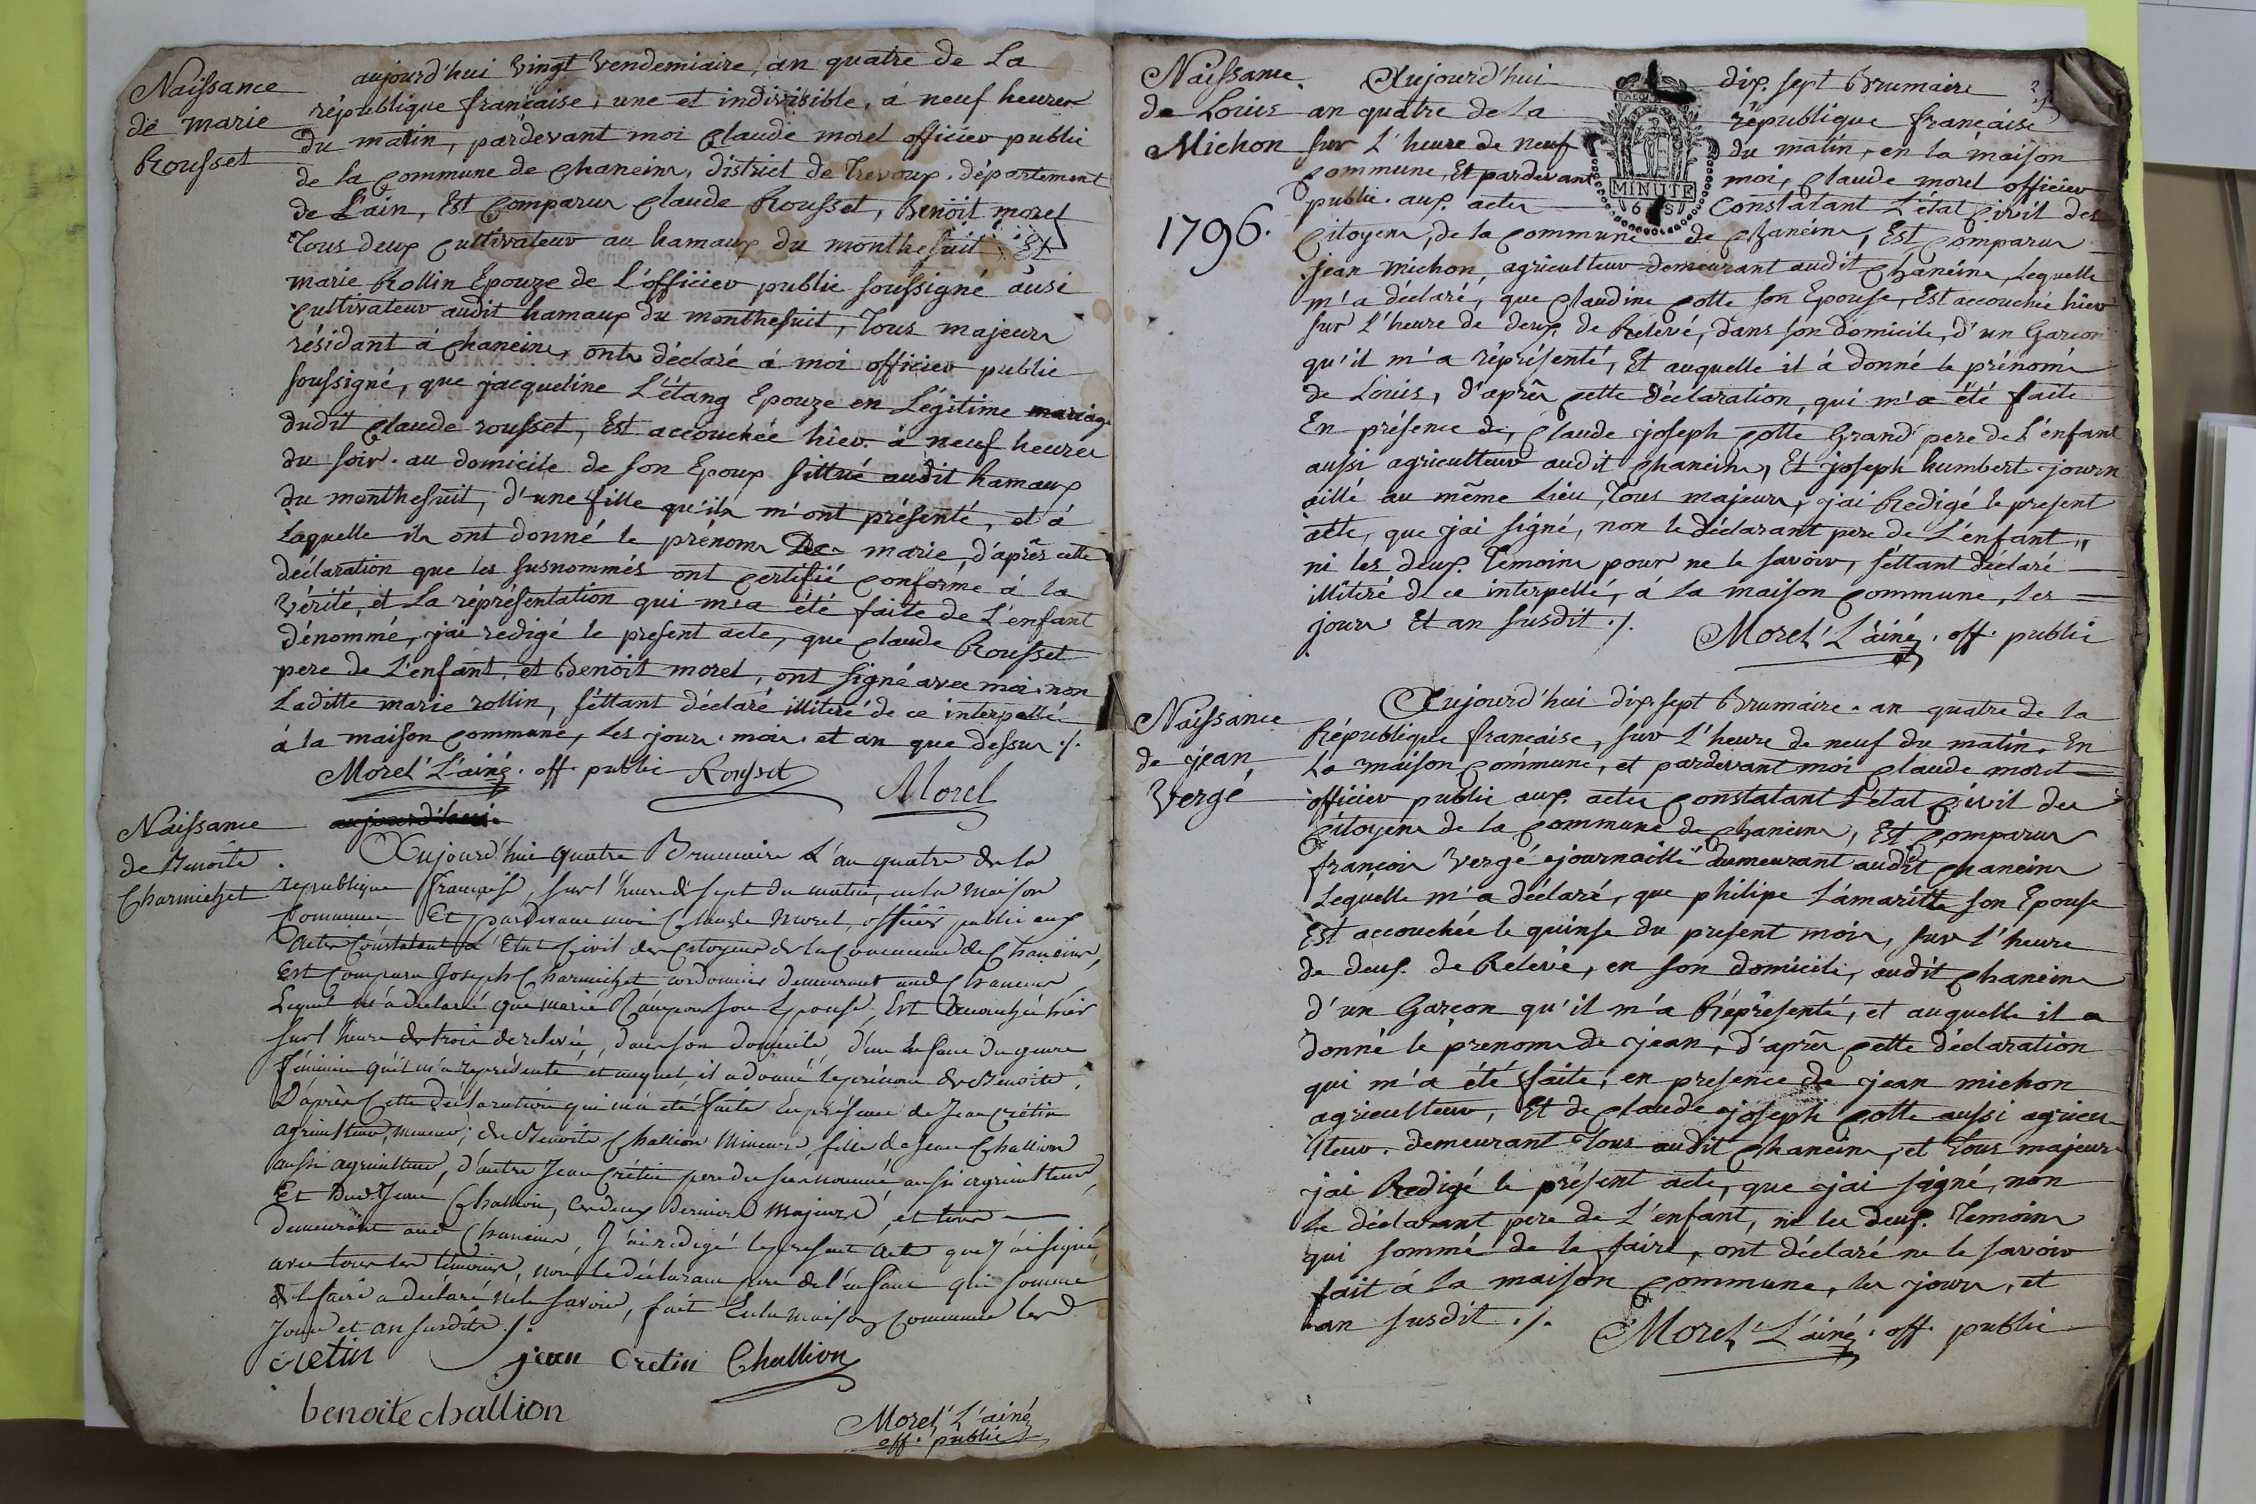 Naissance
de marie
Rousset
aujourd'hui vingt vendemiaire, an quatre de La
république francaise, une et indivisible, à neuf heures
du matin, pardevant moi Claude morel officier public
de la Commune de Chaneins, district de Trevoux, département
de L'ain, Est Comparus Claude Rousset, Benoit morel
Tous deux Cultivateur au hamaux du monthesuit Et
marie Rollin Epouze de L'officier public soussigné ausi
Cultivateur audit hamaux du monthesuit, Tous majeurs
résidant à Chaneins, onts déclaré à moi officier public
soussigné, que jacqueline L'étang Epouze en Légitime mariage
dudit Claude rousset, Est accouchée hier à neuf heures
du soir. au domicile de son Epoux sittué audit hamaux
du monthesuit, d'une fille qu'ils m'ont présenté, et à
Laquelle ils ont donné le prénoms De marie, d'après cette
déclaration que les susnommés ont Certifié Conforme à la
vérité, et La réprésentation qui m'a été faite de L'enfant
dénommé, j'ai redigé le present acte, que Claude Rousset
pere de L'enfant et Benoit morel, ont signé avec moi non
Laditte marie rollin, s'éttant déclaré illiteré de ce interpellé
à la maison Commune, Les jour. mois. et an que dessus ./.
Morel L'ainé. off. public Rousset
Morel
Naissance
de Benoite
Charmichet
aujourd'hui
Aujourd'hui quatre Brumaire L'an quatre de la
republique française, sur l'heure de sept du matin, en la maison
Commune Et pardevant moi Claude Morel, officier public aux
Actes Constatant L'Etat Civil des Citoyens de la Commune de Chaneins,
Est Comparu Joseph Charmichet cordonnier demeurant aud Chaneins
Lequel m'a declaré que marie son Epouse, Est Accouchée hier
sur l'heure de trois de relevée, dans son domicile, d'un Enfant du genre
féminin qu'il m'a représenté et auquel il a donné le prénom de Benoite,
D'après Cette Déclaration qui m'a été faite En présence de Jean Crétin
agriculteur, mineur, de Benoite Challion Mineure, fille de Jean Challion
aussi agriculteur, d'autre Jean Crétin pere du susnommé aussi agriculteur,
Et dud Jean Challion, Ces deux derniers Majeurs, et tous
demeurant aud Chaneins, J'ai redigé le present Acte que J'ai signé
avec tous les témoins, non le déclarant pere de l'enfant qui sommé
de le faire a déclaré ne le savoir, fait En la maison Commune les
Jour et an susdits ./.
cretin jean Cretin Challion
benoite challion
Morel L'ainé
off. public
Naissance
de Louis
Michon
1796.
Aujourd'hui dix sept Brumaire
an quatre de la république francaise
sur L'heure de neuf du matin, en la maison
Commune, Et pardevant moi, Claude morel officier
public aux actes Constatant L'état Civil des
MINUTE
Citoyens, de la Commune de Chaneins, Est Comparus
jean michon agriculteur demeurant audit Chaneins, Lequelle
m'a déclaré, que Claudine Cotte son Epouse, Est accouchée hier
sur L'heure de deux de Relevé, dans son domicile, d'un Garcon
qu'il m'a réprésenté, Et auquelle il à donné le prénoms
de Louis, d'après Cette déclaration, qui m'a été faite
En présence de, Claude joseph Cotte Grand pere de L'enfant
aussi agriculteur audit Chaneins, Et joseph humbert journ
aillé au même Lieu, Tous majeurs, j'ai Redigé le present
acte, que j'ai signé, non le déclarant pere de L'enfant,,
ni les deux Temoins pour ne le savoir, s'éttant déclaré
illiteré de ce interpellé, à La maison Commune, les
jours Et an susdit ./.
Morel L'ainé. off. public
Naissance
de jean
Vergé
Aujourd'hui dix sept Brumaire. an quatre de la
République francaise, sur L'heure de neuf du matin, En
La maison Commune, et pardevant moi Claude morel
officier public aux actes Constatant L'état Civil des
Citoyens de la Commune de Chaneins, Est Comparus
francois Vergé journaillé demeurant audit Chaneins
Lequelle m'a déclaré, que philipe Lamaritte son Epouse
Est accouchée le quinse du present mois, sur L'heure
de deux de Relevé, en son domicile, audit Chaneins
d'un Garcon qu'il m'a Répresenté, et auquelle il a
donné le prenoms de jean, d'après Cette déclaration
qui m'a été faite, en presence de jean michon
agriculteur, Et de Claude joseph Cotte aussi agricu
lteur. demeurant Tous audit Chaneins, et Tous majeurs
j'ai Redigé le présent acte, que j'ai signé, non
Le déclarant pere de L'enfant, ni les deux Temoins
qui sommé de le faire, ont déclaré ne le savoir
fait à La maison Commune, les jours, et
an susdit ./.
Morel L'ainé. off. public